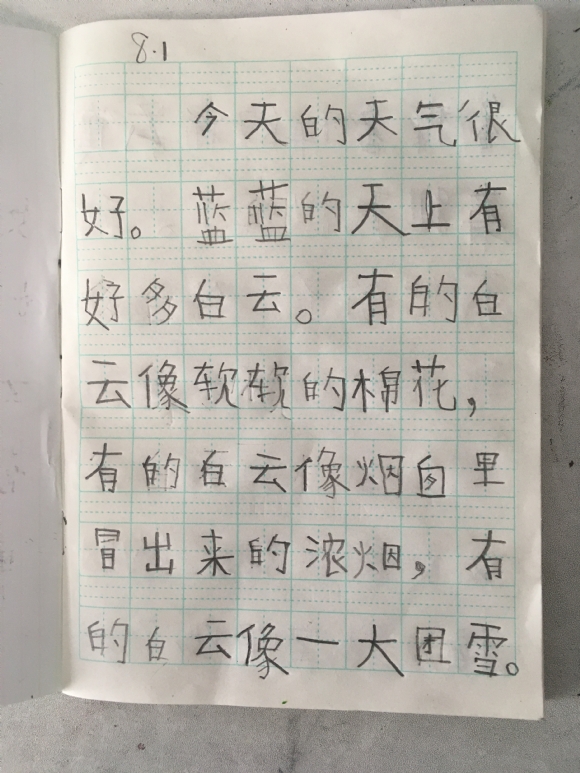 8.1
今天的天气很
好。蓝蓝的天上有
好多白云。有的白
云像软软的棉花，
有的白云像烟囱里
冒出来的浓烟，有
的白云像一大团雪。